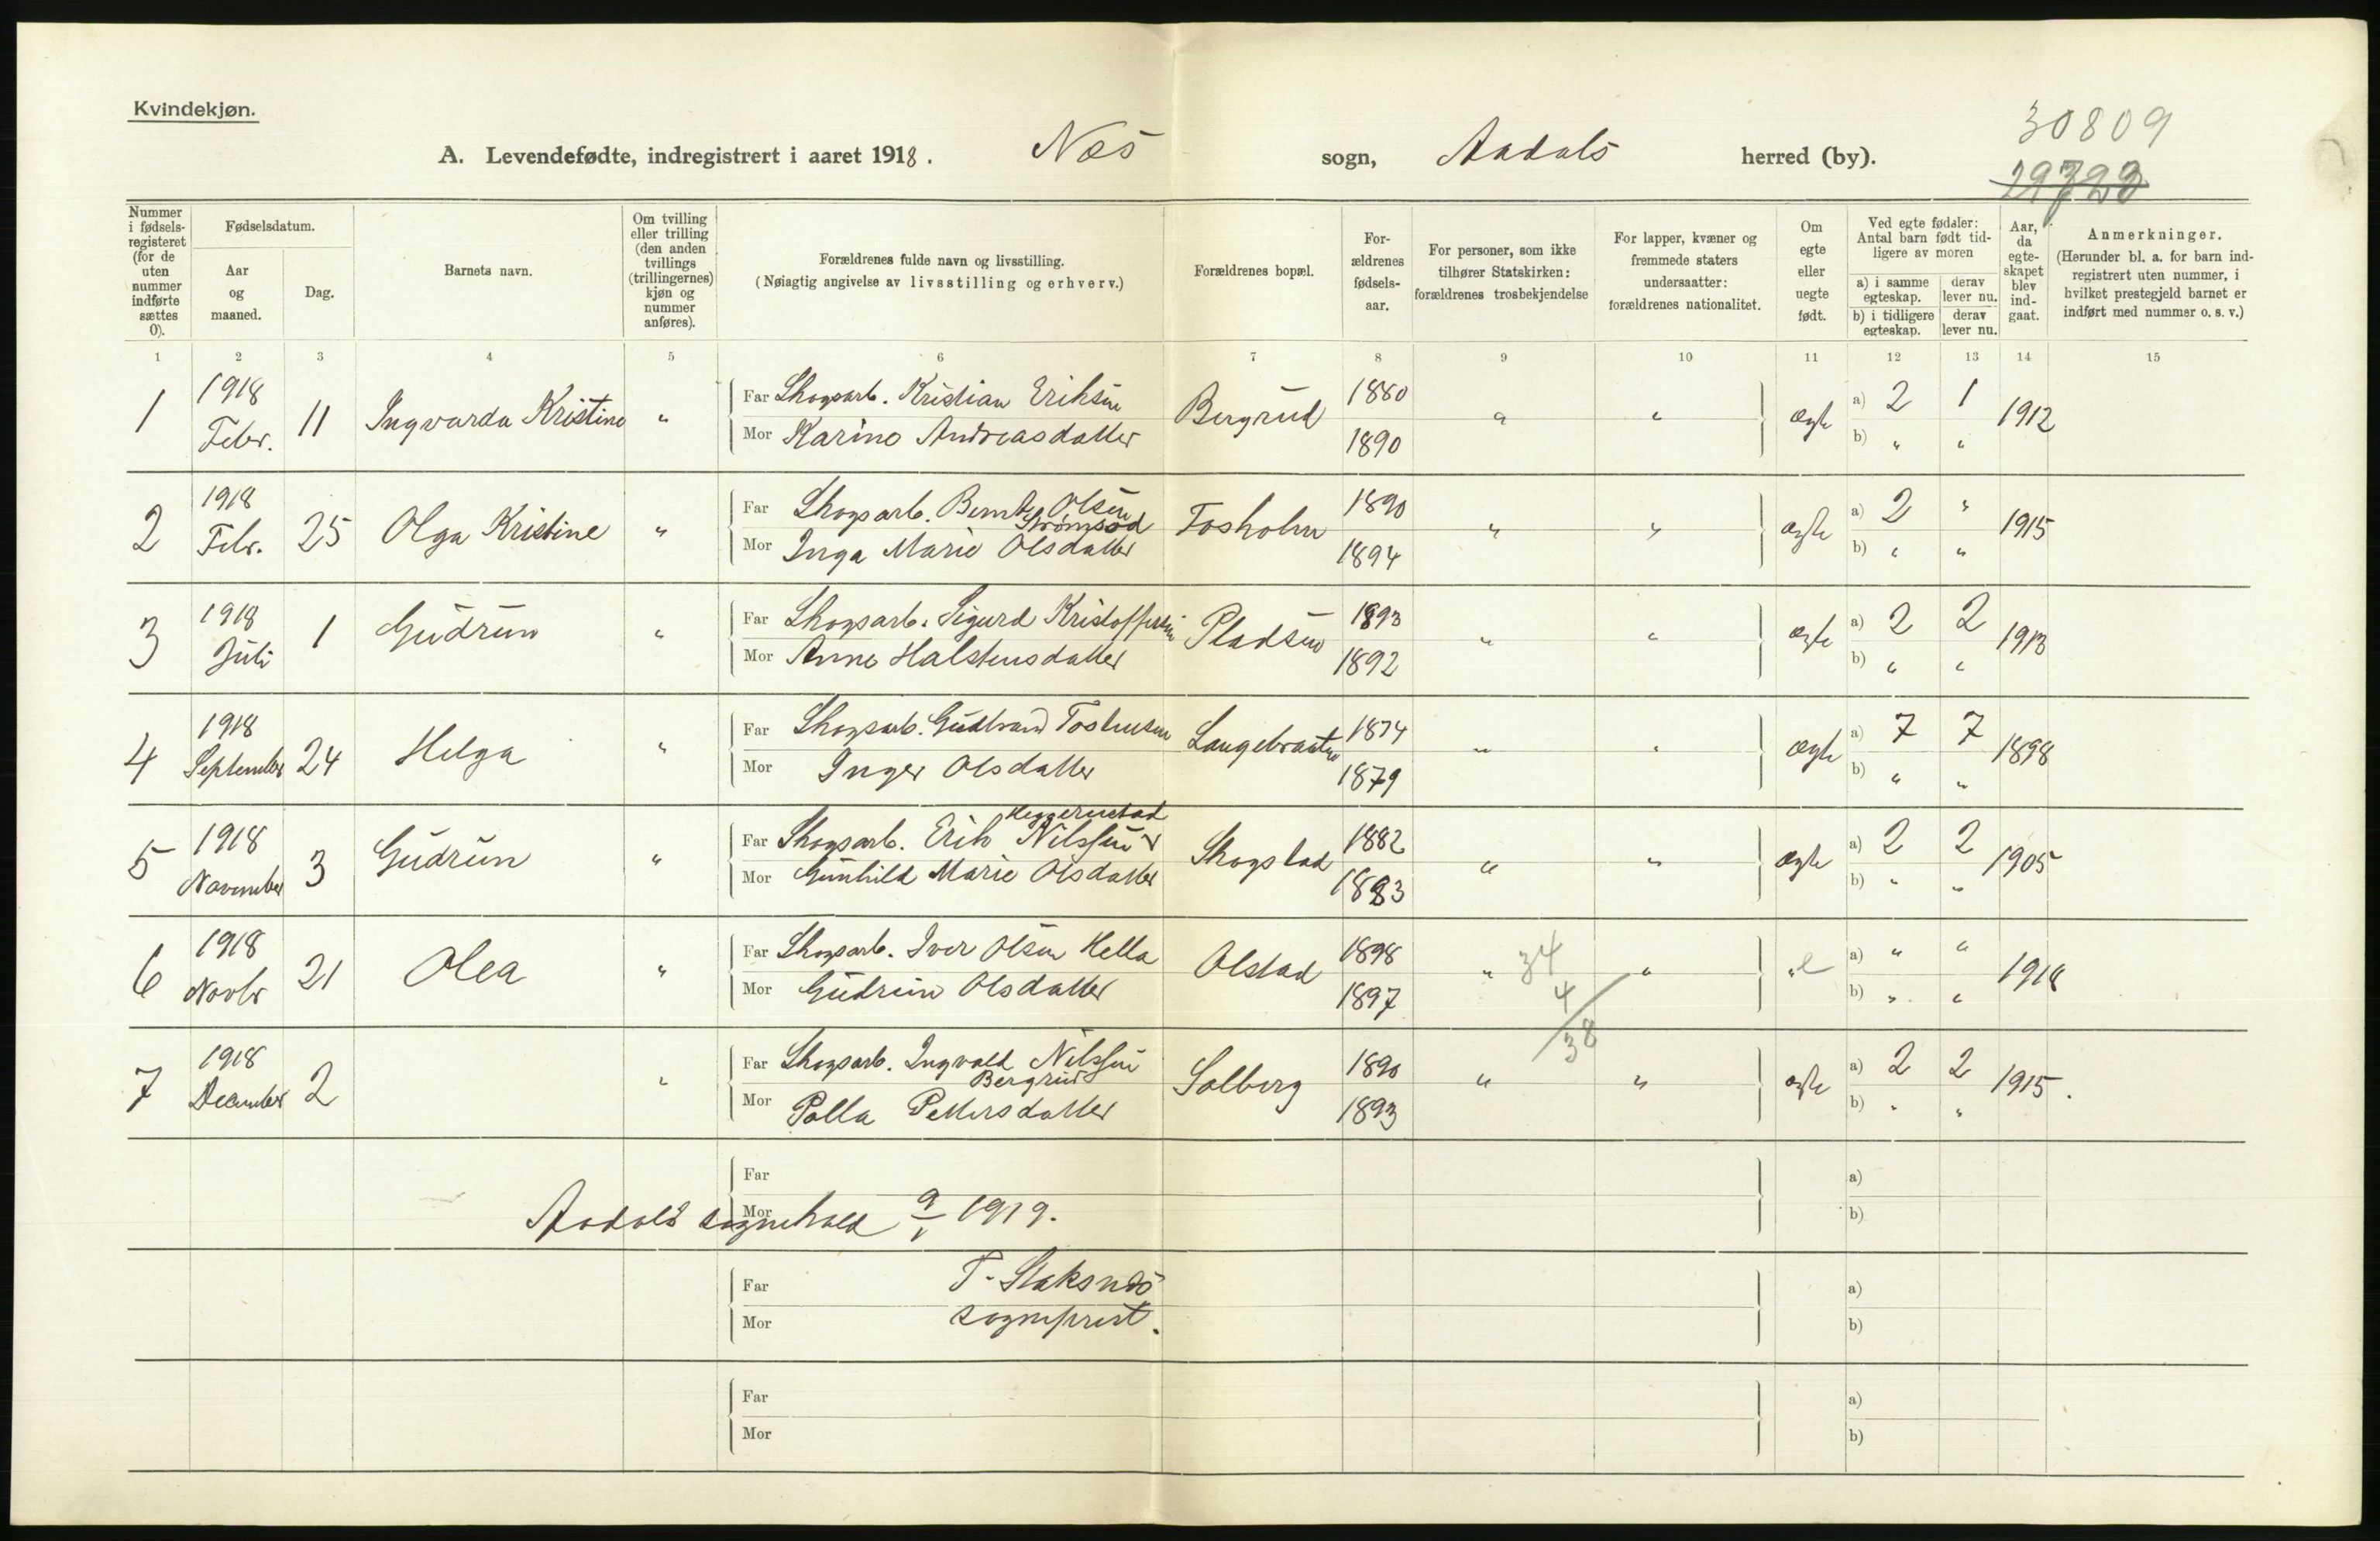 Kvindekjøn.
30809
A. Levendefødte, indregistrert i aaret 1918. Næs sogn, Aadals herred (by).
29723
Nummer i fødsels-registeret (for de uten nummer indførte sættes 0).
Fødselsdatum.
Aar og maaned.
Dag.
Barnets navn.
Om tvilling eller trilling (den anden tvillings (trillingernes) kjøn og nummer anføres).
Forældrenes fulde navn og livsstilling.
(Nøiagtig angivelse av livsstilling og erhverv.)
Forældrenes bopæl.
For-ældrenes fødsels-aar.
For personer, som ikke tilhører Statskirken: forældrenes trosbekjendelse
For lapper, kvæner og fremmede staters undersaatter: forældrenes nationalitet.
Om egte eller uegte født.
Ved egte fødsler: Antal barn født tid-ligere av moren
a) i samme egteskap. derav lever nu.
b) i tidligere egteskap. derav lever nu.
Aar, da egte-skapet blev ind-gaat.
Anmerkninger.
(Herunder bl. a. for barn ind-registrert uten nummer, i hvilket prestegjeld barnet er indført med nummer o. s. v.)
1 2 3 4 5 6 7 8 9 10 11 12 13 14 15
1 1918 Febr. 11 Ingvarda Kristine " Far Skogsarb. Kristian Eriksen Bergrud 1880 " " ægte a) 2 1 1912
Mor Karine Andreasdatter 1890 b) " "
2 1918 Febr. 25 Olga Kristine " Far Skogsarb. Bernt Olsen Strømsød Tosholm 1890 " " ægte a) 2 " 1915
Mor Inga Marie Olsdatter 1894 b) " "
3 1918 Juli 1 Gudrun " Far Skogsarb. Sigurd Kristoffersen Pladsen 1893 " " ægte a) 2 2 1913
Mor Anne Halstensdatter 1892 b) " "
4 1918 September 24 Helga " Far Skogsarb. Gudbrand Tostensen Langebraaten 1874 " " ægte a) 7 7 1898
Mor Inger Olsdatter 1879 b) " "
5 1918 November 3 Gudrun " Far Skogsarb. Erik Nilssen Heggerustad Skogstad 1882 " " ægte a) 2 2 1905
Mor Gunhild Marie Olsdatter 1883 b) " "
6 1918 Novbr 21 Olea " Far Skogsarb. Iver Olsen Hella Olstad 1898 " 34 " " e a) " " 1918
Mor Gudrun Olsdatter 1897 4 b) " "
38
7 1918 December 2 " Far Skogsarb. Ingvald Nilssen Bergrud Solberg 1890 " " ægte a) 2 2 1915.
Mor Palla Pettersdatter 1893 b) " "
Far a)
Mor b)
Aadals sognekald 9/1 1919.
Far T. Staksnæs a)
Mor sogneprest. b)
Far a)
Mor b)